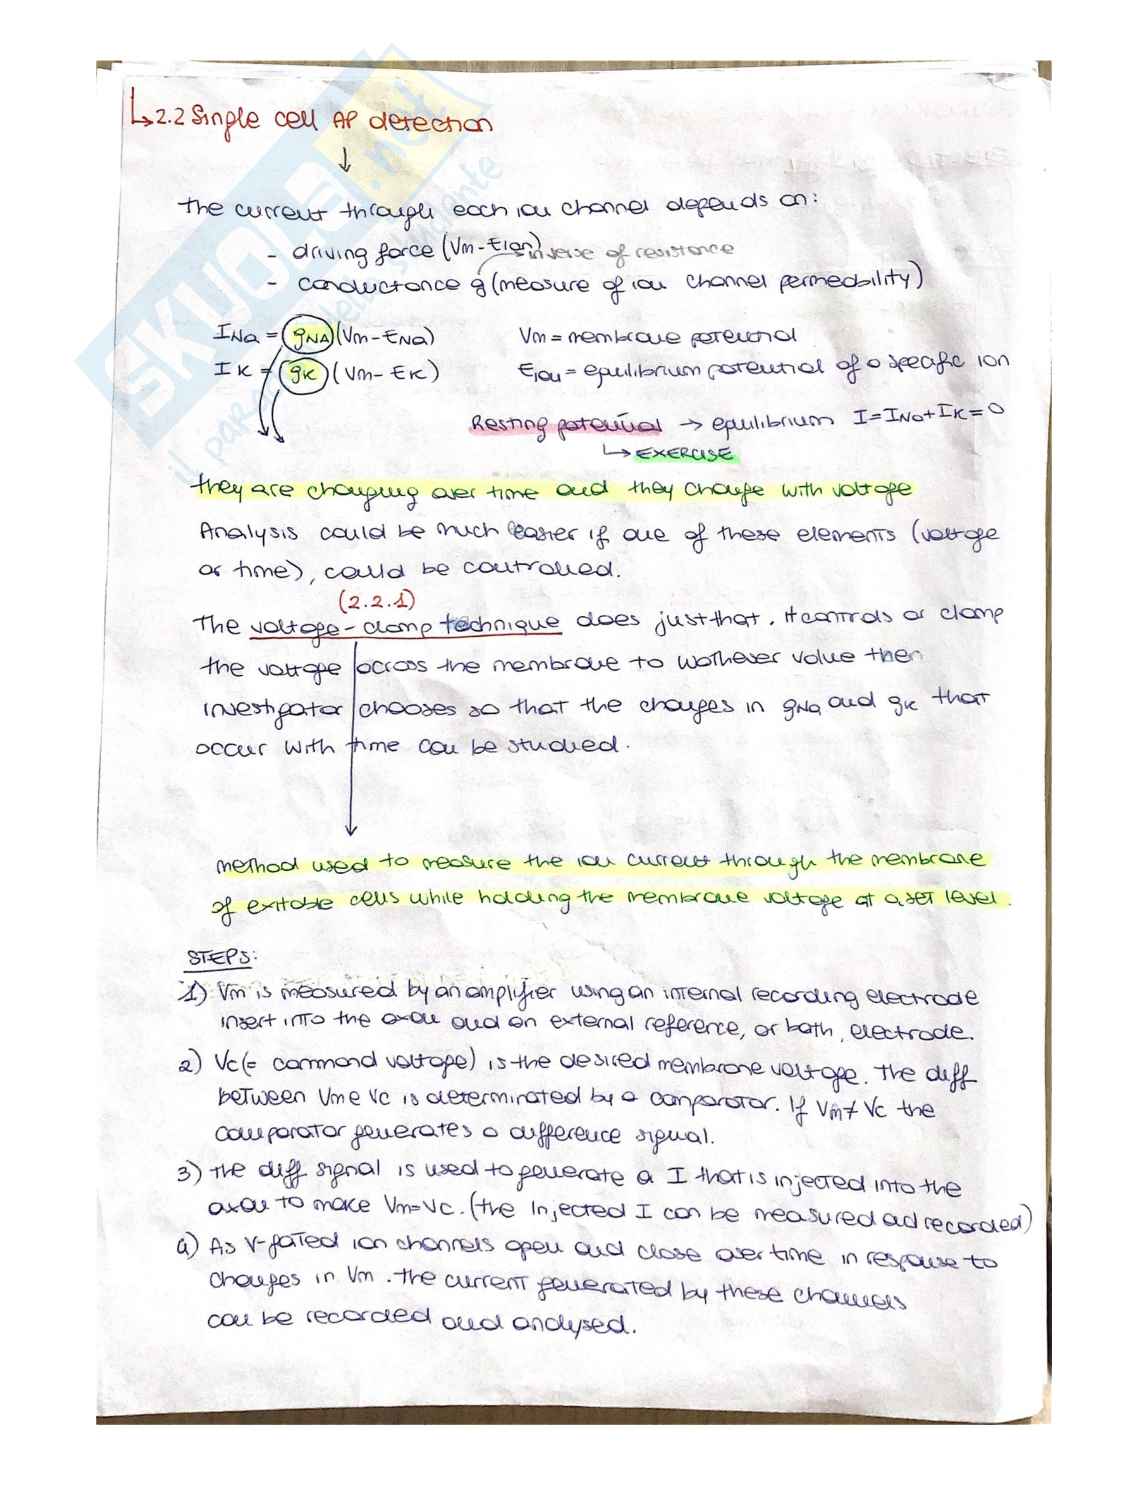 ↳2.2 Single cell AP detection
↓
The current through each ion channel depends on:
- driving force (Vm-Eion)
inverse of resistence
- conductance g (measure of ion channel permeability)
INa = gNA (Vm-ENa)
Vm = membrane potential
IK = gK (Vm-EK)
Eion = equilibrium potential of a specific ion
Resting potential → equilibrium I=INa+IK=0
↳ EXERCISE
they are changing over time and they change with voltage
Analysis could be much easier if one of these elements (voltage
or time), could be controlled.
(2.2.1)
The voltage-clamp technique does just that. It controls or clamp
the voltage across the membrane to wathever value then
investigator chooses so that the changes in gNa and gK that
occur with time can be studied.
method used to measure the ion current through the membrane
of exitable cells while holding the membrane voltage at a set level.
STEPS:
1) Vm is measured by an amplifier using an internal recording electrode
insert into the axon and an external reference, or bath, electrode.
2) Vc (= command voltage) is the desired membrane voltage. The diff
between Vm e Vc is determinated by a comparator. If Vm≠Vc the
comparator generates a difference signal.
3) The diff signal is used to generate a I that is injected into the
axon to make Vm=Vc. (the injected I can be measured ad recorded)
4) As V-gated ion channels open and close over time in response to
changes in Vm. the current generated by these channels
can be recorded and analysed.
SKUOLA.net